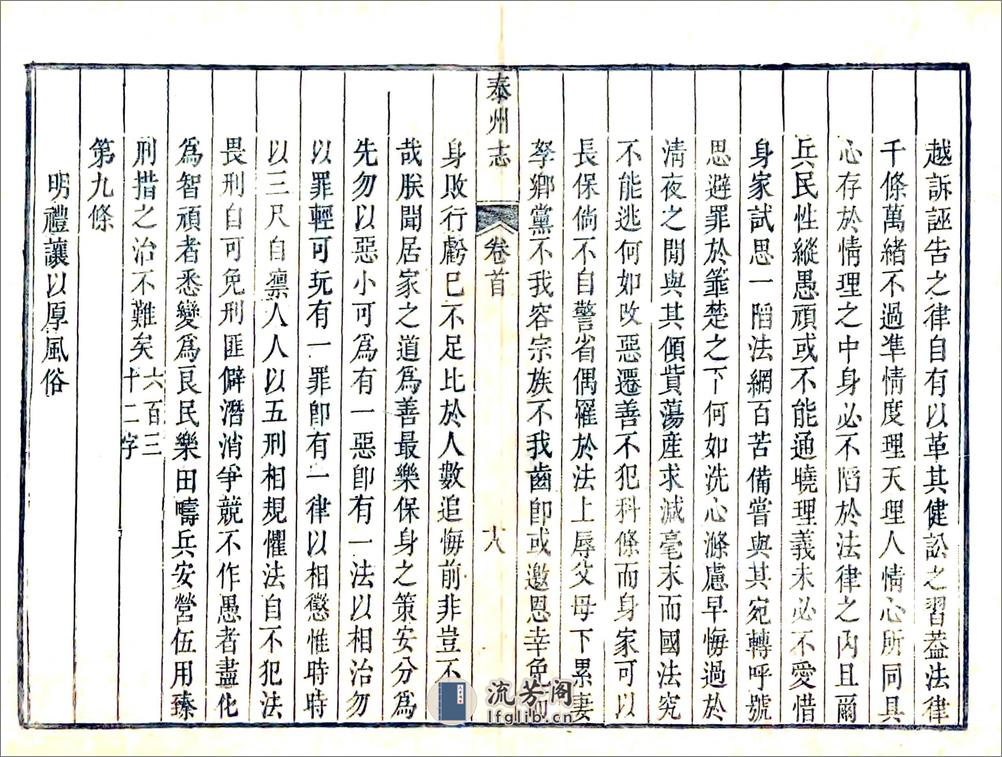 越訴誣告之律自有以革其健訟之習葢法律
千條萬緒不過準情度理天理人情心所同具
心存於情理之中身必不陷於法律之內且爾
兵民性縱愚頑或不能通曉理義未必不愛惜
身家試思一陷法網百苦備嘗與其宛轉呼號
思避罪於箠楚之下何如洗心滌慮早悔過於
清夜之閒與其傾貲蕩產求減毫末而國法究
不能逃何如改惡遷善不犯科條而身家可以
長保倘不自警省偶罹於法上辱父母下累妻
孥鄉黨不我容宗族不我齒卽或邀恩幸免而
泰州志
卷首
十八
身敗行虧已不足比於人數追悔前非豈不
哉朕聞居家之道為善最樂保身之策安分為
先勿以惡小可為有一惡卽有一法以相治勿
以罪輕可玩有一罪卽有一律以相懲惟時時
以三尺自懔人人以五刑相規懼法自不犯法
畏刑自可免刑匪僻潛消爭競不作愚者盡化
為智頑者悉變為良民樂田疇兵安營伍用臻
刑措之治不難矣 六百三十二字
第九條
明禮讓以厚風俗
流芳阁
lfglib.cn